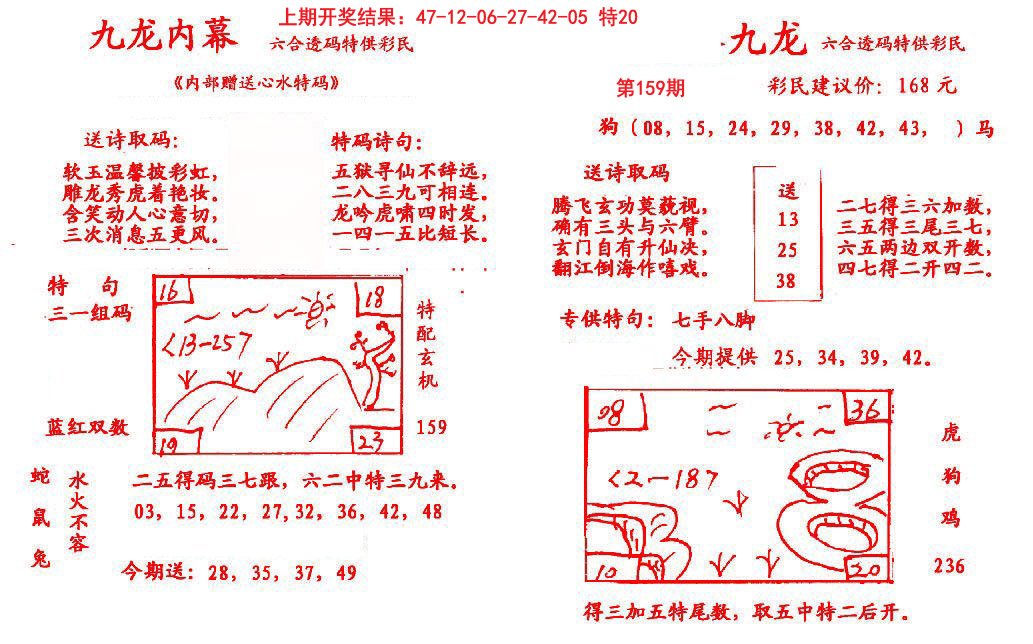 上期开奖结果：47-12-06-27-42-05 特20
九龙内幕 六合透码特供彩民
《内部赠送心水特码》
送诗取码：
软玉温馨披彩虹，
雕龙秀虎着艳妆。
含笑动人心意切，
三次消息五更风。
特码诗句：
五狱寻仙不辞远，
二八三九可相连。
龙吟虎啸四时发，
一四一五比短长。
特 句
三一组码
蓝红双数
16
18
<13-25>
19
23
特配玄机
159
蛇
鼠
兔
水火不容
二五得码三七跟，六二中特三九来。
03，15，22，27,32，36，42，48
今期送：28，35，37，49
九龙 六合透码特供彩民
第159期
彩民建议价：168元
狗（08，15，24，29，38，42，43， ）马
送诗取码
腾飞玄功莫藐视，
确有三头与六臂。
玄门自有升仙决，
翻江倒海作嘻戏。
送
13
25
38
二七得三六加数，
三五得三尾三七，
六五两边双开数，
四七得二开四二。
专供特句：七手八脚
今期提供 25，34，39，42。
08
36
<2-18>
10
20
虎
狗
鸡
236
得三加五特尾数，取五中特二后开。